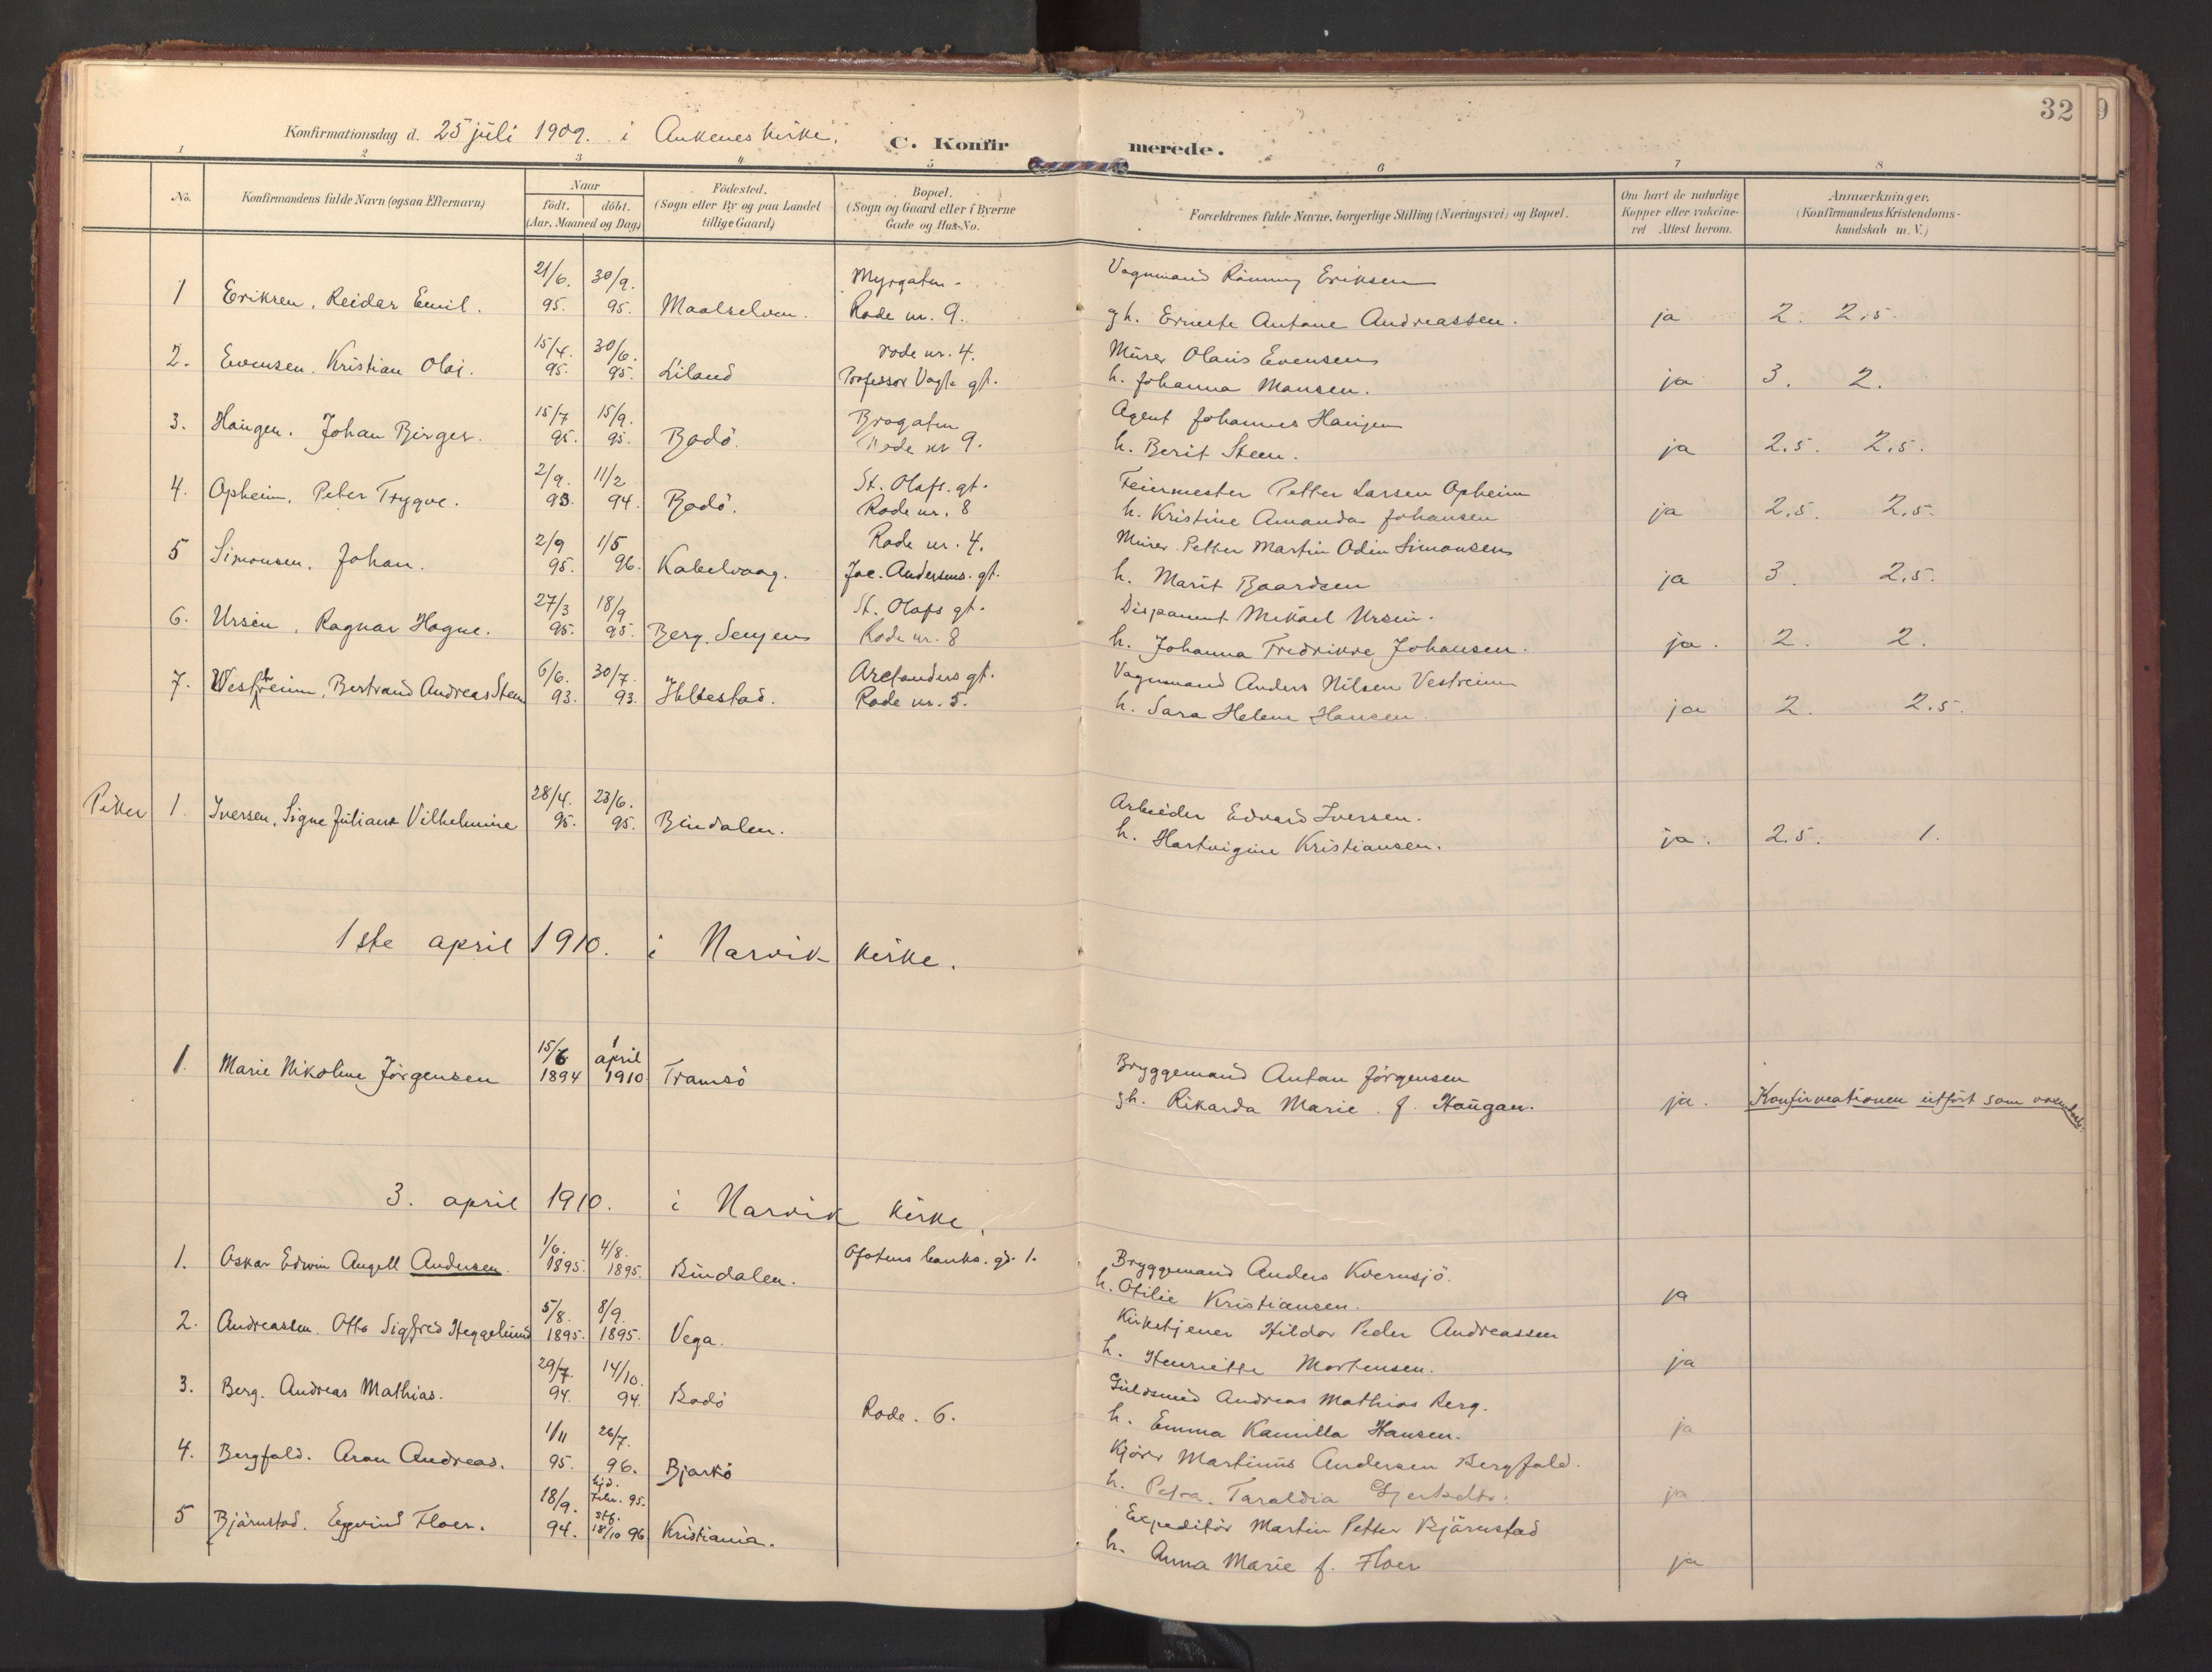 32
9
Konfirmationsdag d. 25 juli 1909. i Ankenes kirke.
C. Konfirmerede.
1 2 3 4 5 6 7 8
No.
Konfirmandens fulde Navn (ogsaa Efternavn)
Naar
födt. döbt.
(Aar, Maaned og Dag)
Födested.
(Sogn eller By og paa Landet
tillige Gaard)
Bopæl.
(Sogn og Gaard eller i Byerne
Gade og Hus-No.
Forældrenes fulde Navne, borgerlige Stilling (Næringsvei) og Bopæl.
Om havt de naturlige
Kopper eller vakcine-
ret Attest herom.
Anmærkninger.
(Konfirmandens Kristendoms-
kundskab m. V.)
21/6. 30/9. Myrgaten - Vognmand Rönning Eriksen
1 Eriksen, Reidar Emil. 95. 95. Maalselven. Rode nr. 9. gh. Erneste Antone Andreassen. ja 2. 2.5.
15/4. 30/6. rode nr. 4. Murer Olaus Evensen
2. Evensen, Kristian Olai. 95. 95. Liland Professor Vogts gt. h. Johanna Monsen. ja 3. 2.
15/7 15/9. Brogaten Agent Johannes Haugen
3. Haugen, Johan Birger. 95. 95. Bodö. Rode nr 9. h. Berit Steen. ja 2.5. 2.5.
2/9. 11/2 St. Olafs. gt. Feiermester Petter Larsen Opheim
4. Opheim, Peter Trygve. 93. 94. Bodö. Rode nr. 8 h. Kristine Amanda Johansen ja 2.5. 2.5.
2/9 1/5 Rode nr. 4. Murer Petter Martin Odin Simonsen
5 Simonsen, Johan. 95. 96. Kabelvaag. Jac. Andersens. gt. h. Marit Baardsen ja 3. 2.5.
27/3 18/9 St. Olafs gt. Disponent Mikael Ursin.
6. Ursin, Ragnar Hagne. 95. 95. Berg. Senjen Rode nr. 8 h. Johanna Fredrikke Johansen. ja. 2. 2.
6/6. 30/7. Arctanders gt. Vognmand Anders Nilsen Vestreim
7. Westrheim, Bertrand Andreas Steen 93. 93. Rode nr. 5. h. Sara Helene Hansen. ja 2. 2.5.
28/4. 23/6. Arbeider Edvard Iversen.
Piker 1. Iversen, Signe Juliana Vilhelmine 95. 95. Bindalen. h. Hartvigine Kristiansen. ja. 2.5. 1.
1ste april 1910. i Narvik kirke.
15/6 1 april Bryggemand Anton Jörgensen
1. Marie Nikoline Jörgensen 1894 1910 Tromsö gh. Rikarda Marie f. Haugan. ja. Konfirmationen utfört som voxendaab.
3. april 1910. i Narvik kirke.
1/6. 4/8. Ofotens banks. gd. 1. Bryggemand Anders Kvernsjö.
1. Oskar Edwin Angell Andersen. 1895. 1895. Bindalen. h. Otilie Kristiansen. ja
5/8. 8/9. Kirketjener Hildor Peder Andreassen
2. Andreassen. Otto Sigfred Heggelund 1895. 1895. Vega. h. Henriette Mortensen. ja
29/7. 14/10. Guldsmed Andreas Mathias Berg.
3. Berg. Andreas Mathias. 94. 94. Bodö Rode. 6. h. Emma Kamilla Hansen. ja
1/11 26/7. Kjörer Martinus Andersen Bergfald.
4. Bergfald. Aron Andreas. 95. 96. Bjarkö h. Petra Taraldia ja
18/9. hjd. Febr. 95. Expeditör Martin Petter Bjärnstad
5 Bjärnstad. Eyvind Floer. 94. stf. 18/10 96 Kristiania. h. Anna Marie f. Floer ja